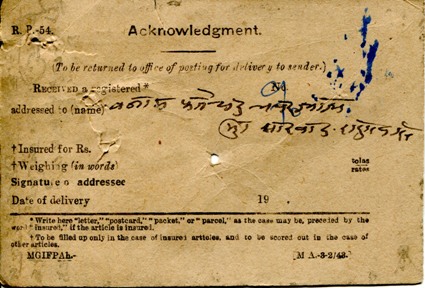 R. P.-54.
Acknowledgment.
(To be returned to office of posting for delivery to sender.)
RECEIVED a registered*
No.
addressed to (name)
† Insured for Rs.
† Weighing (in words)
tolas
rates
Signature o addressee
Date of delivery 19
* Write here "letter," "postcard," "packet," or "parcel," as the case may be, preceded by the
word "insured," if the article is insured.
† To be filled up only in the case of insured articles, and to be scored out in the case of
other articles.
MGIFPAh.-